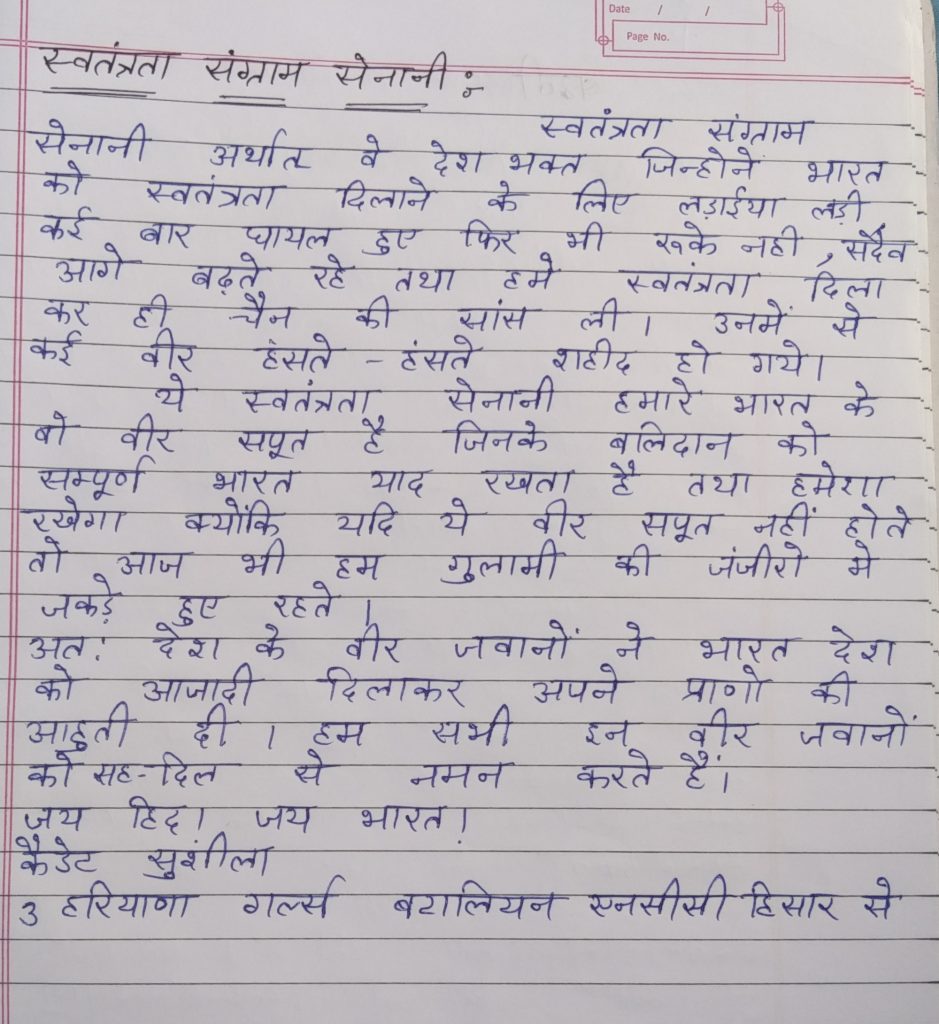 Date / /
Page No.
स्वतंत्रता संग्राम सेनानी :
स्वतंत्रता संग्राम
सेनानी अर्थात वे देश भक्त जिन्होने भारत
को स्वतंत्रता दिलाने के लिए लड़ाईया लड़ी
कई बार घायल हुए फिर भी रूके नही , सदैव
आगे बढ़ते रहे तथा हमे स्वतंत्रता दिला
कर ही चैन की सांस ली । उनमें से
कई वीर हंसते - हंसते शहीद हो गये।
ये स्वतंत्रता सेनानी हमारे भारत के
वो वीर सपूत है जिनके बलिदान को
सम्पूर्ण भारत याद रखता है तथा हमेशा
रखेगा क्योंकि यदि ये वीर सपूत नहीं होते
तो आज भी हम गुलामी की जंजीरो मे
जकड़े हुए रहते ।
अत: देश के वीर जवानों ने भारत देश
को आजादी दिलाकर अपने प्राणो की
आहुती दी । हम सभी इन वीर जवानों
को सह-दिल से नमन करते हैं।
जय हिद। जय भारत।
कैडेट सुशीला
3 हरियाणा गर्ल्स बटालियन एनसीसी हिसार से